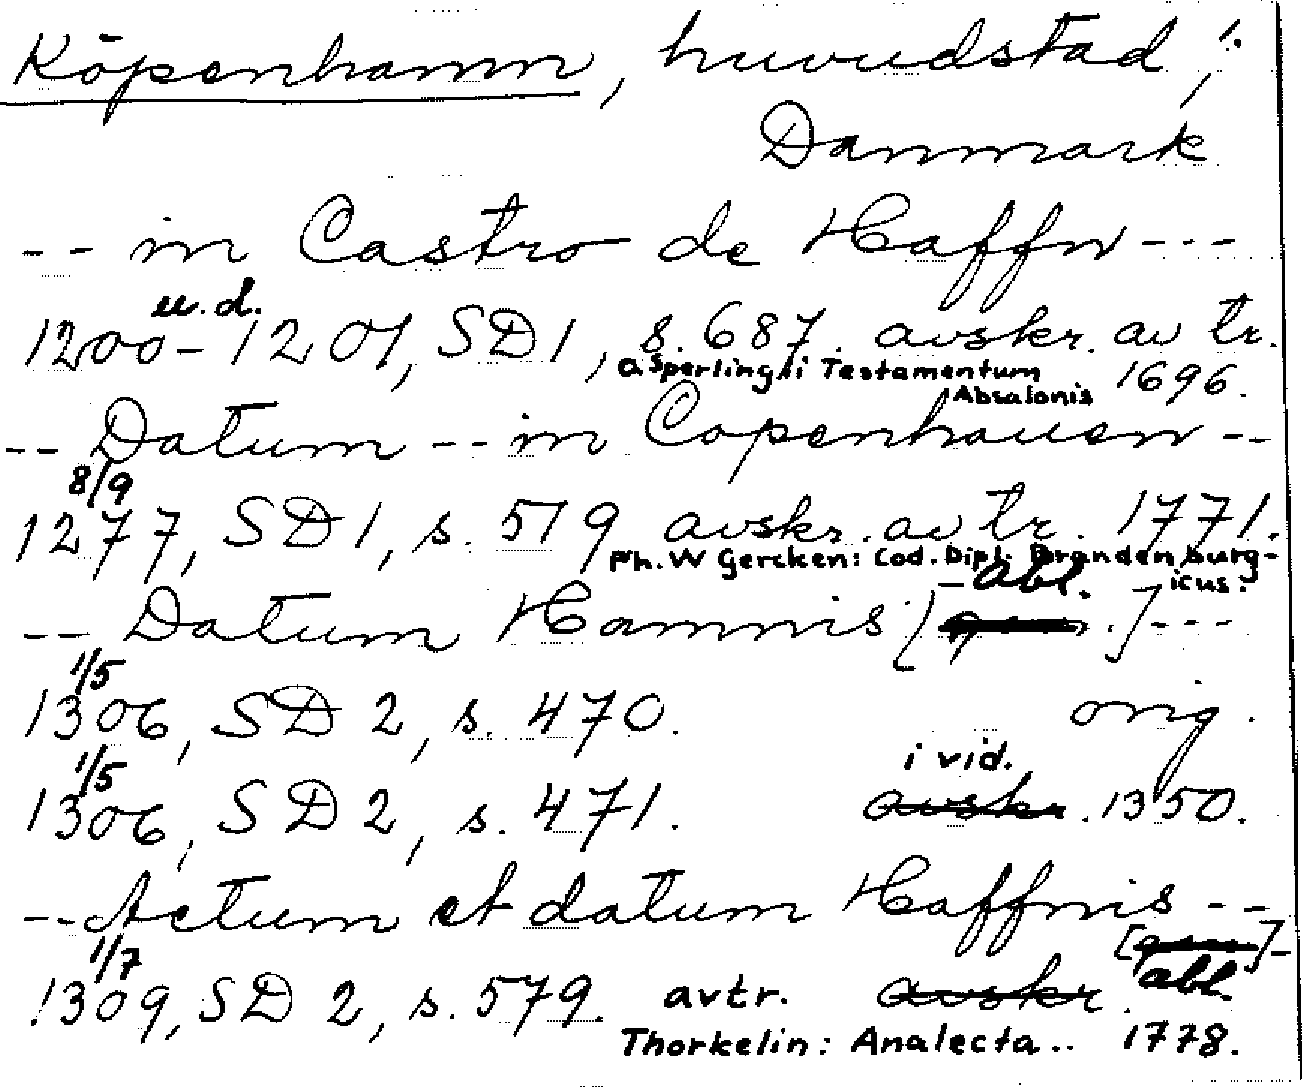 Köpenhamn, huvudstad, 1.
Danmark
-- in Castro de Haffn ---
u.d.
1200-1201, SD1, s. 687. avskr. av tr.
a Sperling i Testamentum 1696.
Absalonis
-- Datum -- in Copenhauen --
8/9
1277, SD1, s. 519 avskr. av tr. 1771.
Ph. W Gercken: Cod. Dipl. Brandenburg-
icus.
- abl.
-- Datum Hamnis [gen.] ---
1/5
1306, SD 2, s. 470. orig.
1/5 i vid.
1306, SD 2, s. 471. avskr. 1350.
-- Actum et datum Haffnis --
1/7 [gen]-
abl.
1309, SD 2, s. 579. avtr. avskr.
Thorkelin: Analecta.. 1778.